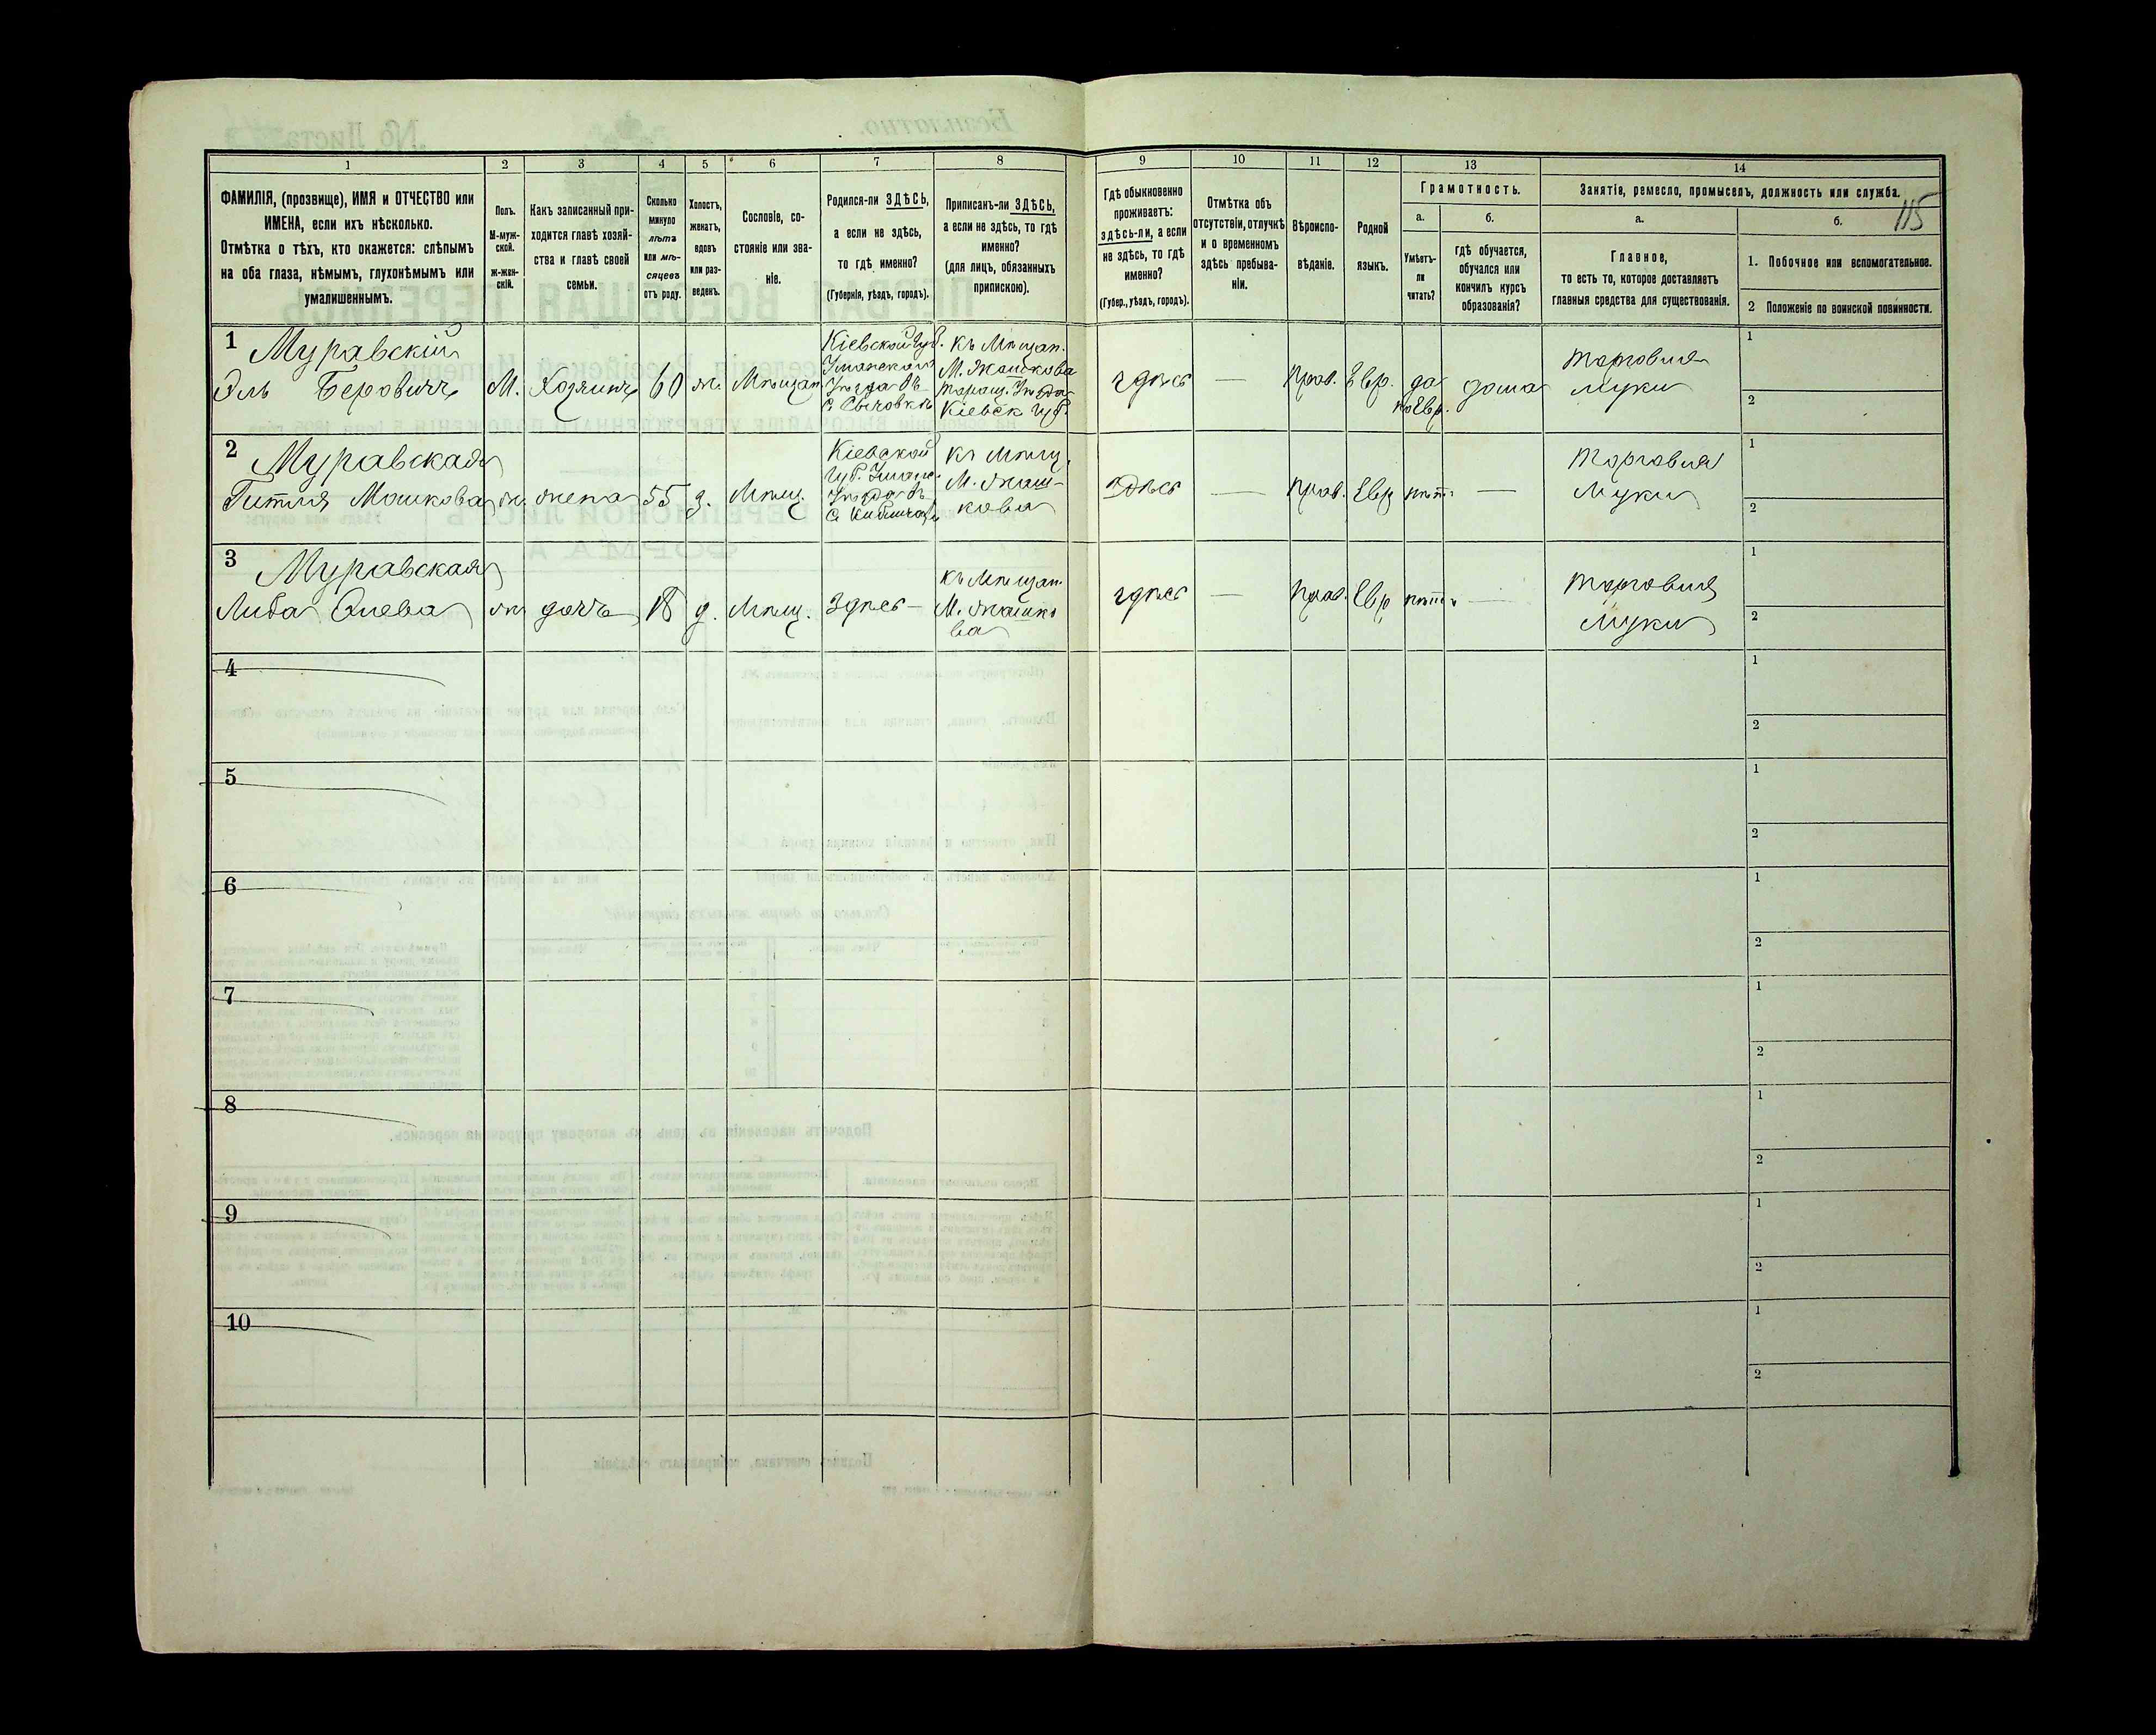 1
2
3
4
5
6
7
8
9
10
11
12
13
14
ФАМИЛІЯ, (прозвище), ИМЯ и ОТЧЕСТВО или
ИМЕНА, если ихъ нѣсколько.
Отмѣтка о тѣхъ, кто окажется: слѣпымъ
на оба глаза, нѣмымъ, глухонѣмымъ или
умалишеннымъ.
Полъ.
М-муж-
ской.
ж-жен-
скій.
Какъ записанный при-
ходится главѣ хозяй-
ства и главѣ своей
семьи.
Сколько
минуло
лѣтъ
или мѣ-
сяцевъ
отъ роду.
Холостъ,
женатъ,
вдовъ
или раз-
веденъ.
Сословіе, со-
стояніе или зва-
ніе.
Родился-ли ЗДѢСЬ,
а если не здѣсь,
то гдѣ именно?
(Губернія, уѣздъ, городъ).
Приписанъ-ли ЗДѢСЬ,
а если не здѣсь, то гдѣ
именно?
(для лицъ, обязанныхъ
припискою).
Гдѣ обыкновенно
проживаетъ:
здѣсь-ли, а если
не здѣсь, то гдѣ
именно?
(Губер., уѣздъ, городъ).
Отмѣтка объ
отсутствіи, отлучкѣ
и о временномъ
здѣсь пребыва-
ніи.
Вѣроиспо-
вѣданіе.
Родной
языкъ.
Грамотность.
а.
б.
Умѣетъ-
ли
читать?
гдѣ обучается,
обучался или
кончилъ курсъ
образованія?
Занятіе, ремесло, промыселъ, должность или служба.
115
а.
б.
Главное,
то есть то, которое доставляетъ
главныя средства для существованія.
1. Побочное или вспомогательное.
2 Положеніе по воинской повинности.
1
Муравскій
Эль Беровичъ
М.
Хозяинъ
60
ж.
Мѣщан.
Кіевской Губ.
Уманскаго
Уѣзда въ
с. Сычовкѣ
къ Мѣщан.
М. Жашкова
Таращ. Уѣзда
Кіевск Губ.
здѣсь
—
Іуд.
Евр.
да
по Евр.
дома
Торговля
муки
1
2
2
Муравская
Гитля Мошкова
ж.
жена
55
з.
Мѣщ.
Кіевской
Губ. Уманс.
Уѣзда въ
къ Мѣщ.
М. Жаш-
кова
здѣсь
—
Евр
нѣтъ
—
Торговля
муки
1
2
3
Муравская
Либа Элева
ж
дочь
18
д.
Мѣщ.
Здѣсь —
къ Мѣщан.
М. Жашко
ва
здѣсь
—
Евр
нѣтъ
—
Торговля
муки
1
2
4
1
2
5
1
2
6
1
2
7
1
2
8
1
2
9
1
2
10
1
2